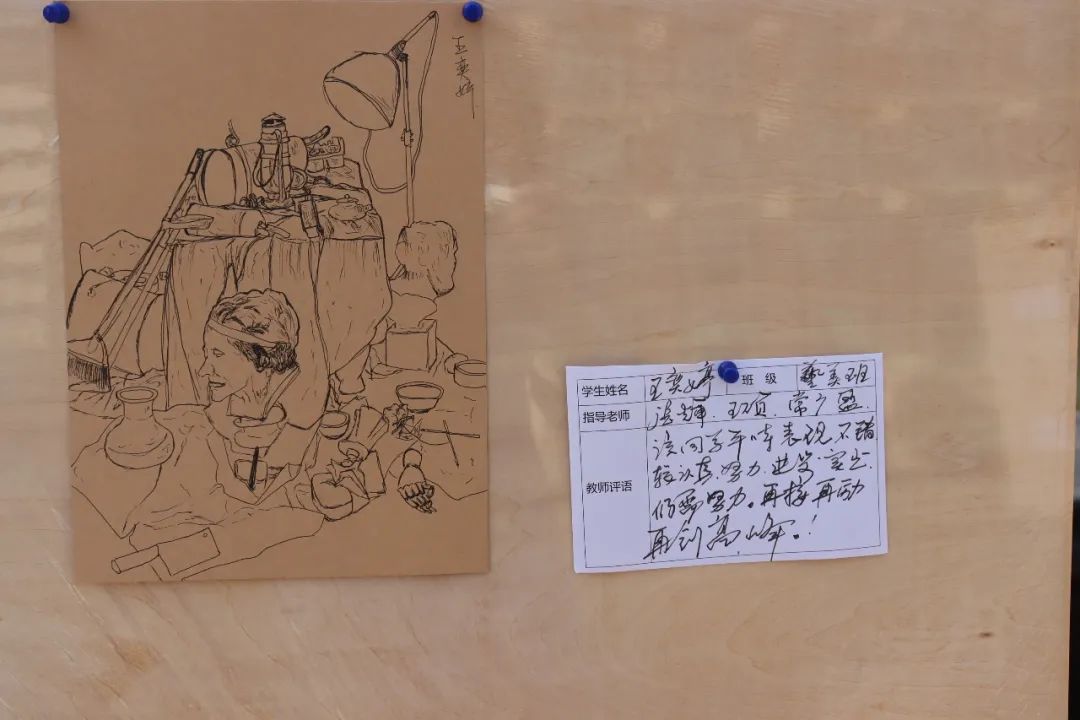 王奕婷
学生姓名 王奕婷 班 级 艺美班
指导老师 常广盈
该同学平时表现不错
教师评语 较认真.努力.进步
仍需努力。再接再励
再创高峰。!